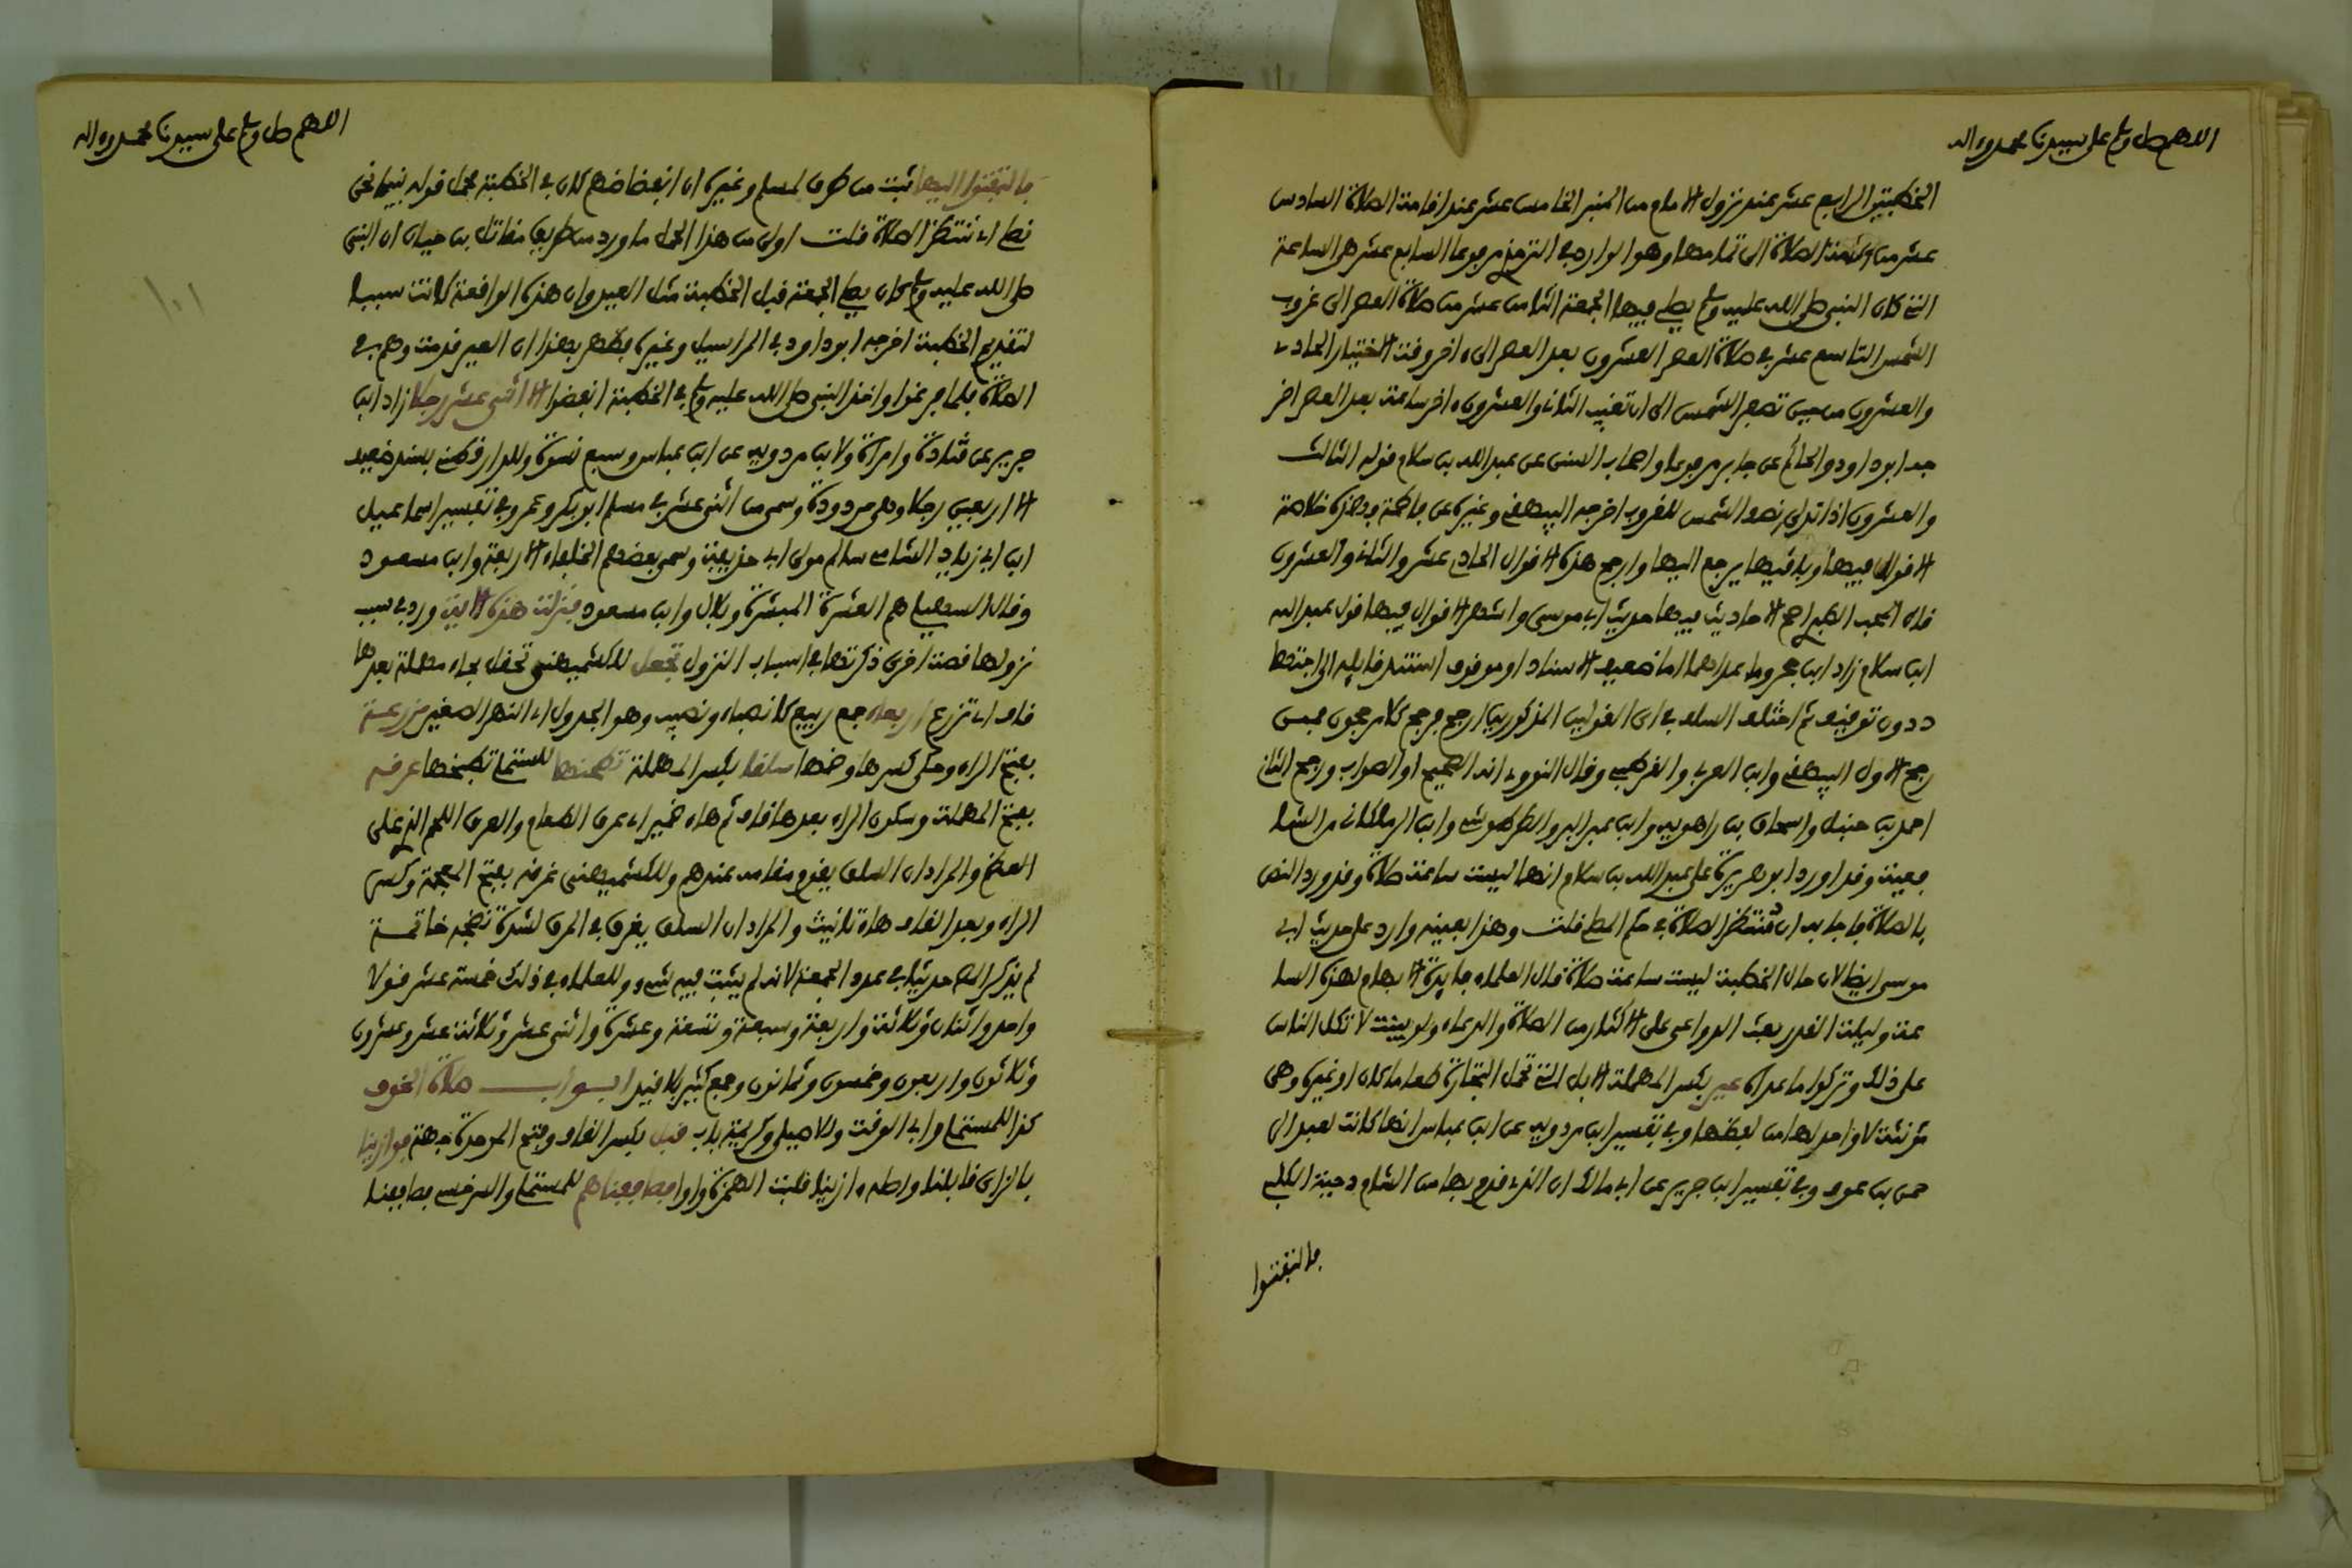 اللهم صل وسلم على سيدنا محمد وءاله
الخطبتين الرابع عشر عند نزول الامام من المنبر الخامس عشر عند اقامة الصلاة السادس
عشر من اقامة الصلاة الى تمامها وهو الوارد في الترمذي مرفوعا السابع عشر هي الساعة
التي كان النبي صلى الله عليه وسلم يصلي فيها الجمعة الثامن عشر من صلاة العصر الى غروب
الشمس التاسع عشر في صلاة العصر العشرون بعد العصر الى ءاخر وقت الاختيار الحادي
والعشرون من حين تصفر الشمس الى ان تغيب الثاني والعشرون ءاخر ساعة بعد العصر اخر
جه ابو داود والحاكم عن جابر مرفوعا واصحاب السنن عن عبد الله بن سلام قوله الثالث
والعشرون اذا تدلى نصف الشمس للغروب اخرجه البيهقي وغيره عن فاطمة فهذه خلاصة
الاقوال فيها وباقيها يرجع اليها وارجح هذه الاقوال الحادي عشر والثاني والعشرون
قال المحب الطبري اصح الاحاديث فيها حديث ابي موسى واشهر الاقوال فيها قول عبد الله
ابن سلام زاد ابن حجر وما عداهما اما ضعيف الاسناد او موقوف استند قايله الى اجتهاد
دون توقيف ثم اختلف السلف في اي القولين المذكورين ارجح فرجح كلا مرجحون فممن
رجح الاول البيهقي وابن العربي والقرطبي وقال النووي انه الصحيح او الصواب ورجح الثاني
احمد بن حنبل واسحاق بن راهويه وابن عبد البر والطرطوشي وابن الزملكاني من الشا
فعية وقد اورد ابو هريرة على عبد الله بن سلام انها ليست ساعة صلاة وقد ورد النص
بالصلاة فاجابه ان منتظر الصلاة في حكم المصلي قلت وهذا بعينه وارد على حديث ابي
موسى ايضا لان حال الخطبة ليست ساعة صلاة قال العلماء فايدة الابهام لهذه السا
عة وليلة القدر بعث الدواعي على الاكثار من الصلاة والدعاء ولو بينت لاتكل الناس
على ذلك وتركوا ما عداه عير بكسر المهملة الابل التي تحمل التجارة طعاما كان او غيره وهي
مؤنثة لا واحد لها من لفظها وفي تفسير ابن مردويه عن ابن عباس انها كانت لعبد الر
حمن بن عوف وفي تفسير ابن جرير عن ابي مالك ان الذي قدم بها من الشام دحية الكلبي
فالتفتوا
اللهم صل وسلم على سيدنا محمد وءاله
فالتفتوا اليها ثبت من طرق لمسلم وغيره ان انفضاضهم كان في الخطبة فحمل قوله بينما نحن
نصلي اي ننتظر الصلاة قلت اولى من هذا الحمل ما ورد من طريق مقاتل بن حيان ان النبي
صلى الله عليه وسلم كان يصلي الجمعة قبل الخطبة مثل العيد وان هذه الواقعة كانت سببا
لتقديم الخطبة اخرجه ابو داود في المراسيل وغيره فظهر بهذا ان العير قدمت وهم في
الصلاة فلما فرغوا واخذ النبي صلى الله عليه وسلم في الخطبة انفضوا الا اثني عشر رجلا زاد ابن
جرير عن قتادة وامراة ولابن مردويه عن ابن عباس وسبع نسوة وللدارقطني بسند ضعيف
الا اربعين رجلا وهي مردودة وسمى من اثني عشر في مسلم ابو بكر وعمر وفي تفسير اسماعيل
ابن ابي زياد الشامي سالم مولى ابي حذيفة وسمى بعضهم الخلفاء الاربعة وابن مسعود
وقال السهيلي هم العشرة المبشرة وبلال وابن مسعود فنزلت هذه الاية ورد في سبب
نزولها قصة اخرى ذكرتها في اسباب النزول تجعل للكشميهني تحقل بحاء مهملة بعدها
قاف اي تزرع اربعاء جمع ربيع كانصباء ونصيب وهو الجدول اي النهر الصغير مزرعة
بفتح الراء وحكي كسرها وضمها سلقا بكسر المهملة تطحنها للمستملي تطبخها عرقه
بفتح المهملة وسكون الراء بعدها قاف ثم هاء ضمير اي عرق الطعام والعرق اللحم الذي على
العظم والمراد ان السلق يقوم مقامه عندهم وللكشميهني غرقه بفتح المعجمة وكسر
الراء وبعد القاف هاء تانيث والمراد ان السلق يغرق في المرق لشدة نضجه خاتمة
لم يذكر المص حديثا في عدد الجمعة لانه لم يثبت فيه شيء وللعلماء في ذلك خمسة عشر قولا
واحد واثنان وثلاثة واربعة وسبعة وتسعة وعشرة واثنى عشر وثلاثة عشر وعشرون
وثلاثون واربعون وخمسون وثمانون وجمع كثير بلا قيد ابواب صلاة الخوف
كذا للمستملي وابي الوقت وللاصيلي وكريمة باب قبل بكسر القاف وفتح الموحدة جهة فوازينا
بالزاي قابلنا واصله ءازينا قلبت الهمزة واوا فصاففناهم للمستملي والسرخسي فصاففنا